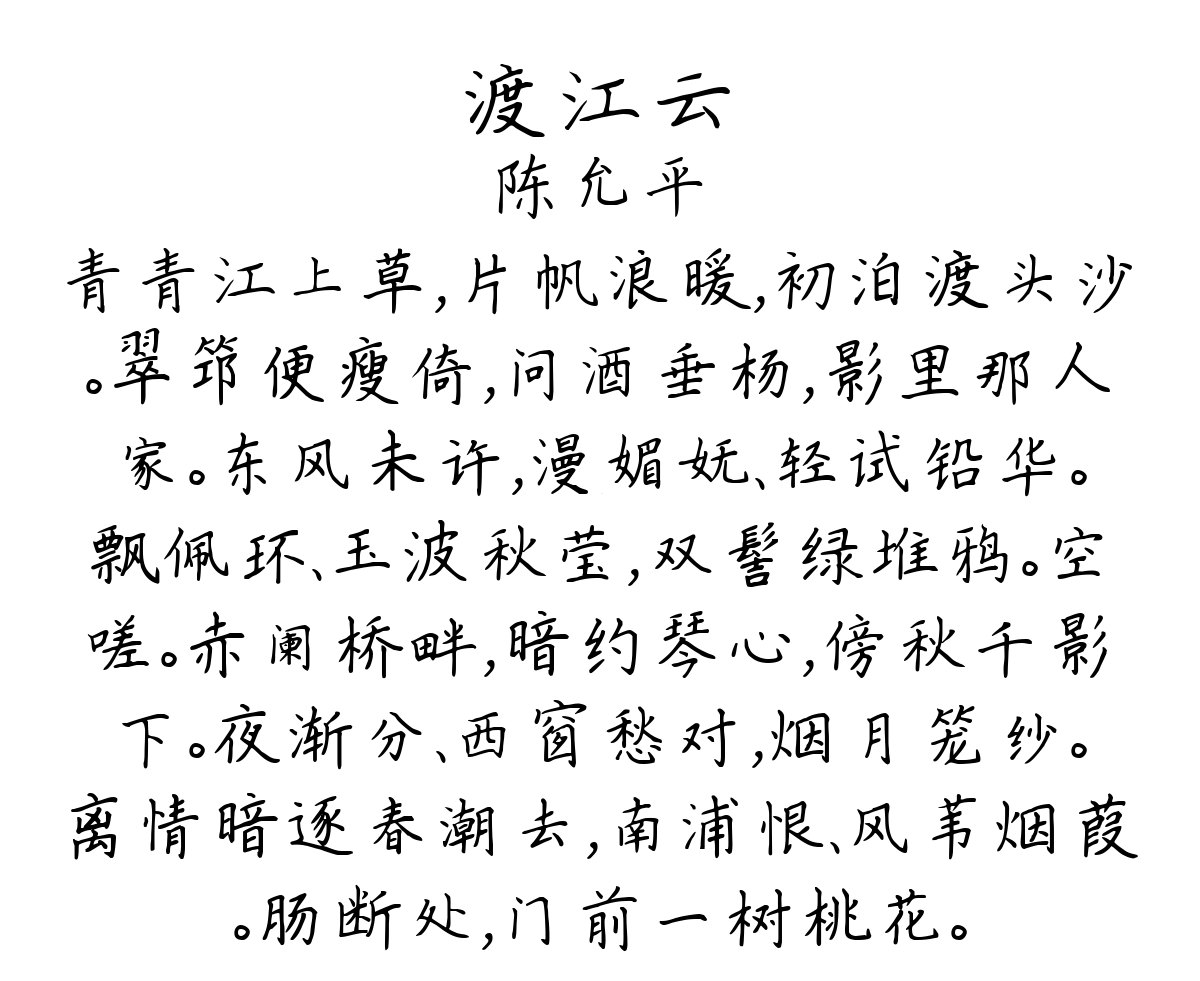 渡江云
陈允平
青青江上草,片帆浪暖,初泊渡头沙
。翠筇便瘦倚,问酒垂杨,影里那人
家。东风未许,漫媚妩、轻试铅华。
飘佩环、玉波秋莹,双髻绿堆鸦。空
嗟。赤阑桥畔,暗约琴心,傍秋千影
下。夜渐分、西窗愁对,烟月笼纱。
离情暗逐春潮去,南浦恨、风苇烟葭
。肠断处,门前一树桃花。